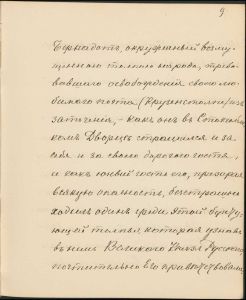 9.
Бернадотъ, окруженный возму-
щенною толпою народа, требо-
вавшаго освобожденія своего лю-
бимаго поэта (Крузенстолпе) изъ
заточенія, - какъ онъ въ Стокгольм-
комъ Дворцѣ страшился и за
себя и за своего дорогого гостя,
и какъ юный гость его, презирая
всякую опасность, безстрашно
ходилъ одинъ среди этой бунту-
ющей толпы которая узнавъ
въ немъ Великаго Князя Русскаго
почтительно Его привѣтствовала